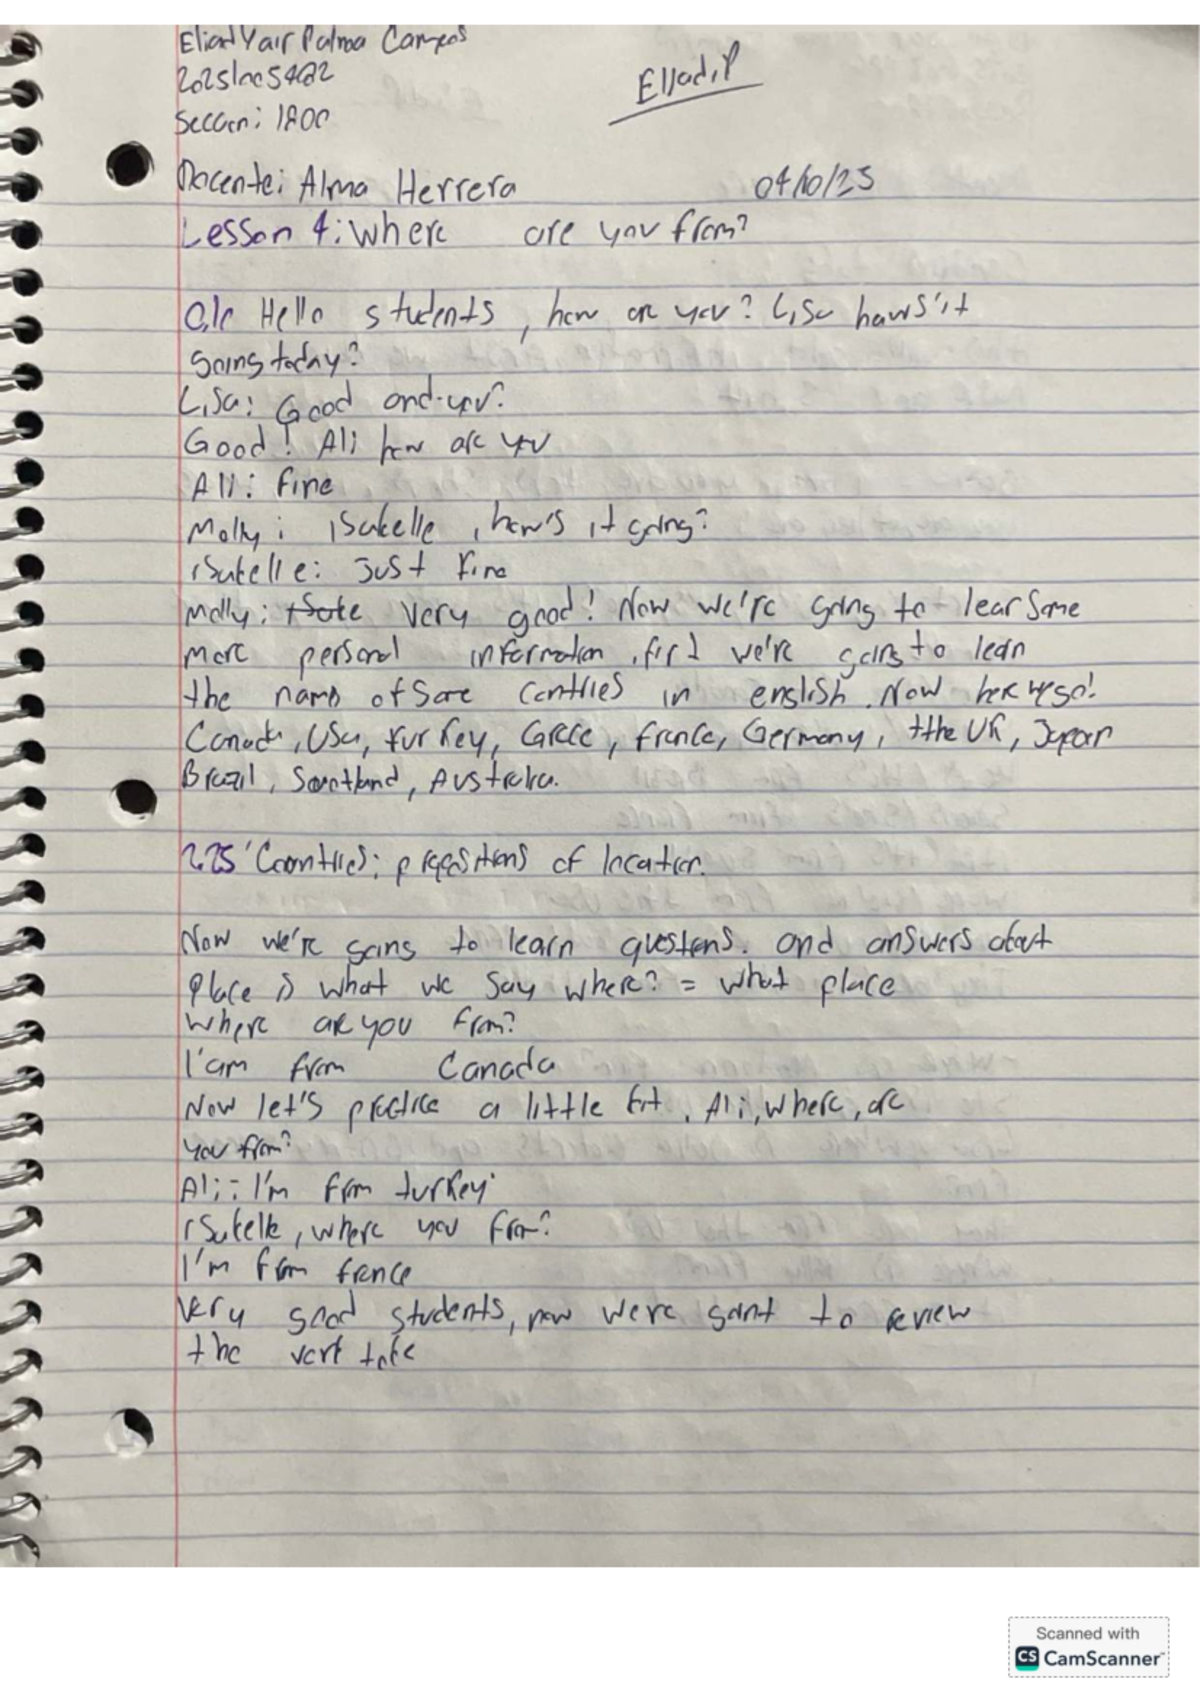 Eliad Yair Palma Campos
Seccion: 1800
Eliad.P
Docente: Alma Herrera 04/10/25
Lesson 4: Where are you from?
Hello students, how are you? Lisa haws'it
going today?
Lisa: Good and you?
Good! Ali how are you
Ali: fine
Molly: isabelle, how's it going?
isabelle: Just fine
Molly: very good! Now we're going to lear some
more personal information, first we're going to learn
the name of some contries in english. Now here we go!
Canada, Usa, turkey, Grece, france, Germany, the UK, Japan
Brazil, Scootland, Australia.
2:25 Countries: prepositions of location.
Now we're going to learn questions. and answers about
place is what we say where? = what place
Where are you from?
I'am from Canada
Now let's practice a little bit. Ali, where, are
you from?
Ali: I'm from turkey
isabelle, where you from?
I'm from france
Very good students, now were goint to review
the verb tobe
Scanned with
CS CamScanner